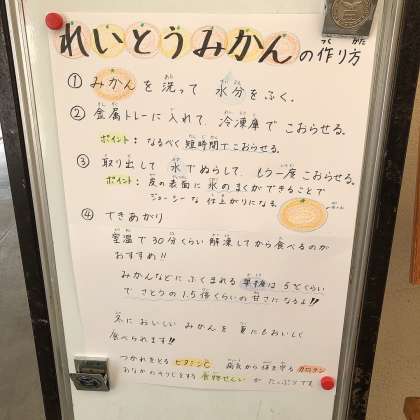 れいとうみかんの作り方
① みかんを洗って 水分をふく。
② 金属トレーに入れて、冷凍庫でこおらせる。
ポイント：なるべく短時間でこおらせる。
③ 取り出して 水でぬらして、もう一度こおらせる。
ポイント：皮の表面に氷のまくができることで
ジューシーな仕上がりになる。
④ できあがり
室温で30分くらい解凍してから食べるのが
おすすめ!!
みかんなどにふくまれる果糖は5℃くらい
でさとうの1.5倍くらいの甘さになるよ!!
冬においしいみかんを夏にもおいしく
食べられます!!
つかれをとるビタミンC 病気から体を守るカロテン
おなかのそうじをする食物せんいがたっぷりです